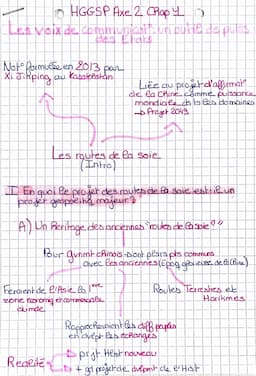 HGGSP Axe 2 Chap 1
Les voix de communicat° : un outil de puiss
des Etats
Not° formulée en 2013 par
Xi Jinping au Kazakhstan
Liée au projet d'affirmat°
de la Chine comme puissance
mondiale ds ts les domaines
→ Projet 2049
Les routes de la soie
(Intro)
I. En quoi le projet des routes de la soie est-il un
projet géopolitiq majeur ?
A) Un héritage des anciennes "routes de la soie" ?
Pour qu
chinois
pts communs
avec les anciennes (Epoq glorieuse de la Chine)
Feraient de l'Asie la 1ère
zone économiq et commerciale
du mde
Routes Terrestres et
Maritimes
Rapprocheraient les diff peuples
en dvlpt les échanges
Réalité
projt Hist nouveau
+ gd projet de dvlpmt de l'Hist